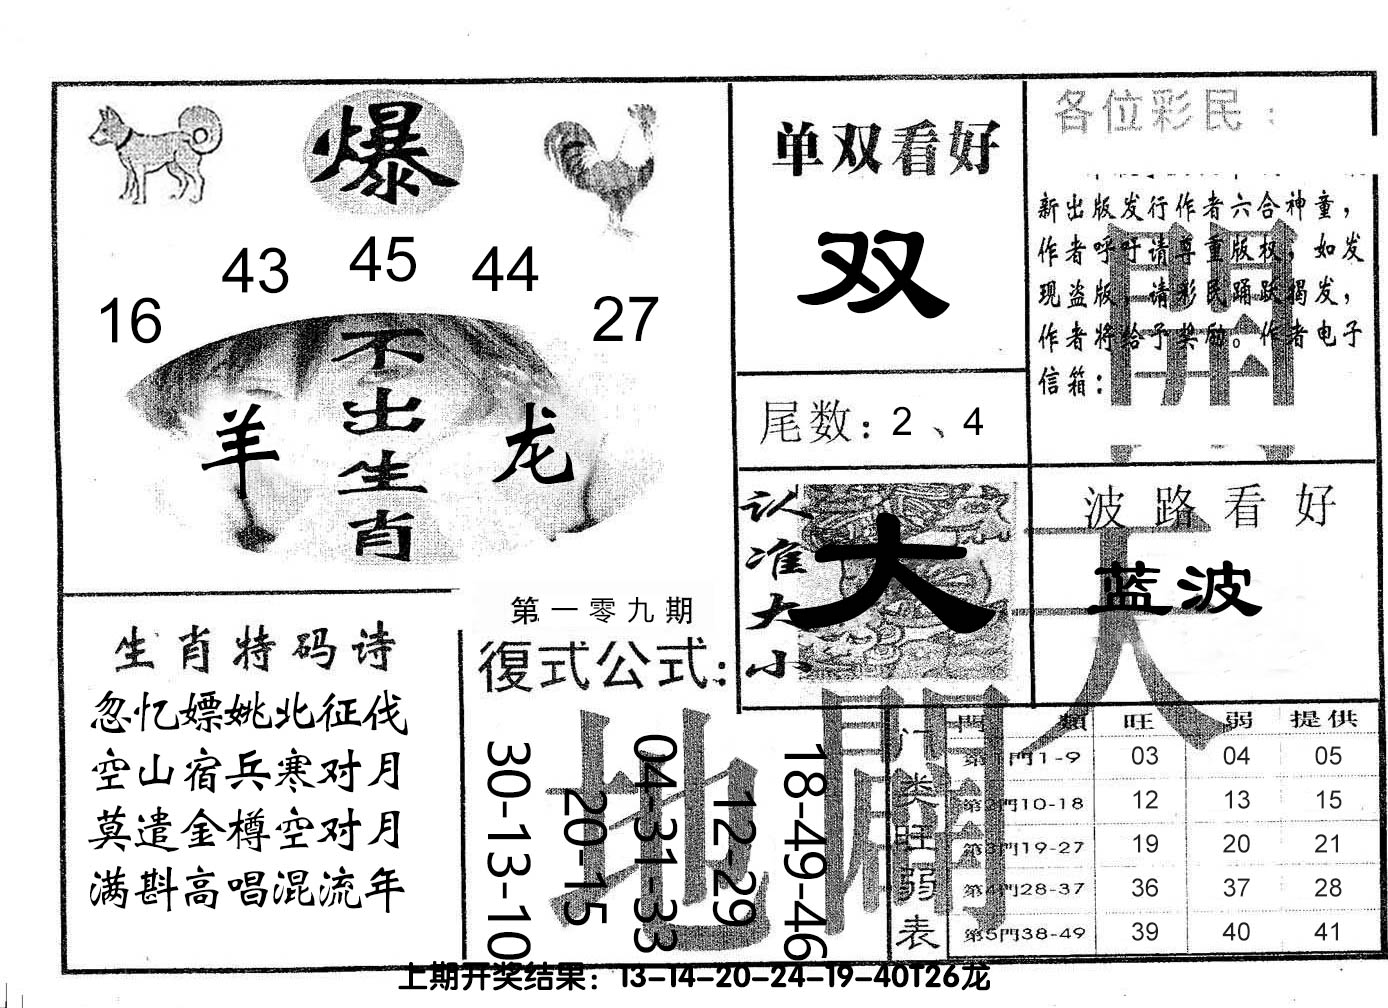 爆
16 43 45 44 27
不出生肖
羊
龙
单双看好
双
尾数：2、4
各位彩民：
新出版发行作者六合神童，
作者呼吁请尊重版权，如发
现盗版，请彩民踊跃揭发，
作者将给予奖励。作者电子
信箱：
開
认准大小
大
波路看好
蓝波
天
生肖特码诗
忽忆嫖姚北征伐
空山宿兵寒对月
莫遣金樽空对月
满斟高唱混流年
第一零九期
復式公式：
30-13-10
20-15
04-31-33
12-29
18-49-46
地
閘
门类旺弱表
門類 旺 弱 提供
第1門1-9 03 04 05
第2門10-18 12 13 15
第3門19-27 19 20 21
第4門28-37 36 37 28
第5門38-49 39 40 41
上期开奖结果：13-14-20-24-19-40T26龙